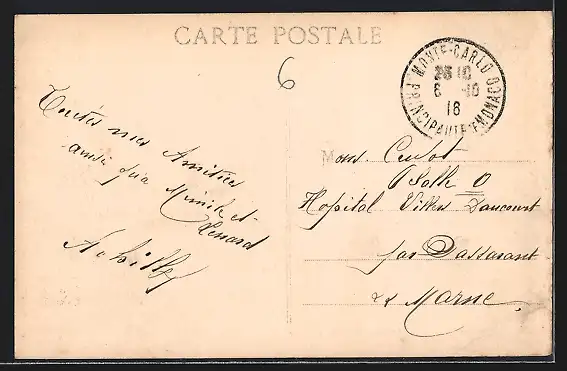 CARTE POSTALE
6
MONTE-CARLO
25 10
6 -10
16
PRINCIPAUTE DE MONACO
Toutes mes Amitiés
ainsi qu'a
Achille
Mons.
Salle O
Hopital Villers Daucourt
par Dassavant
Marne.